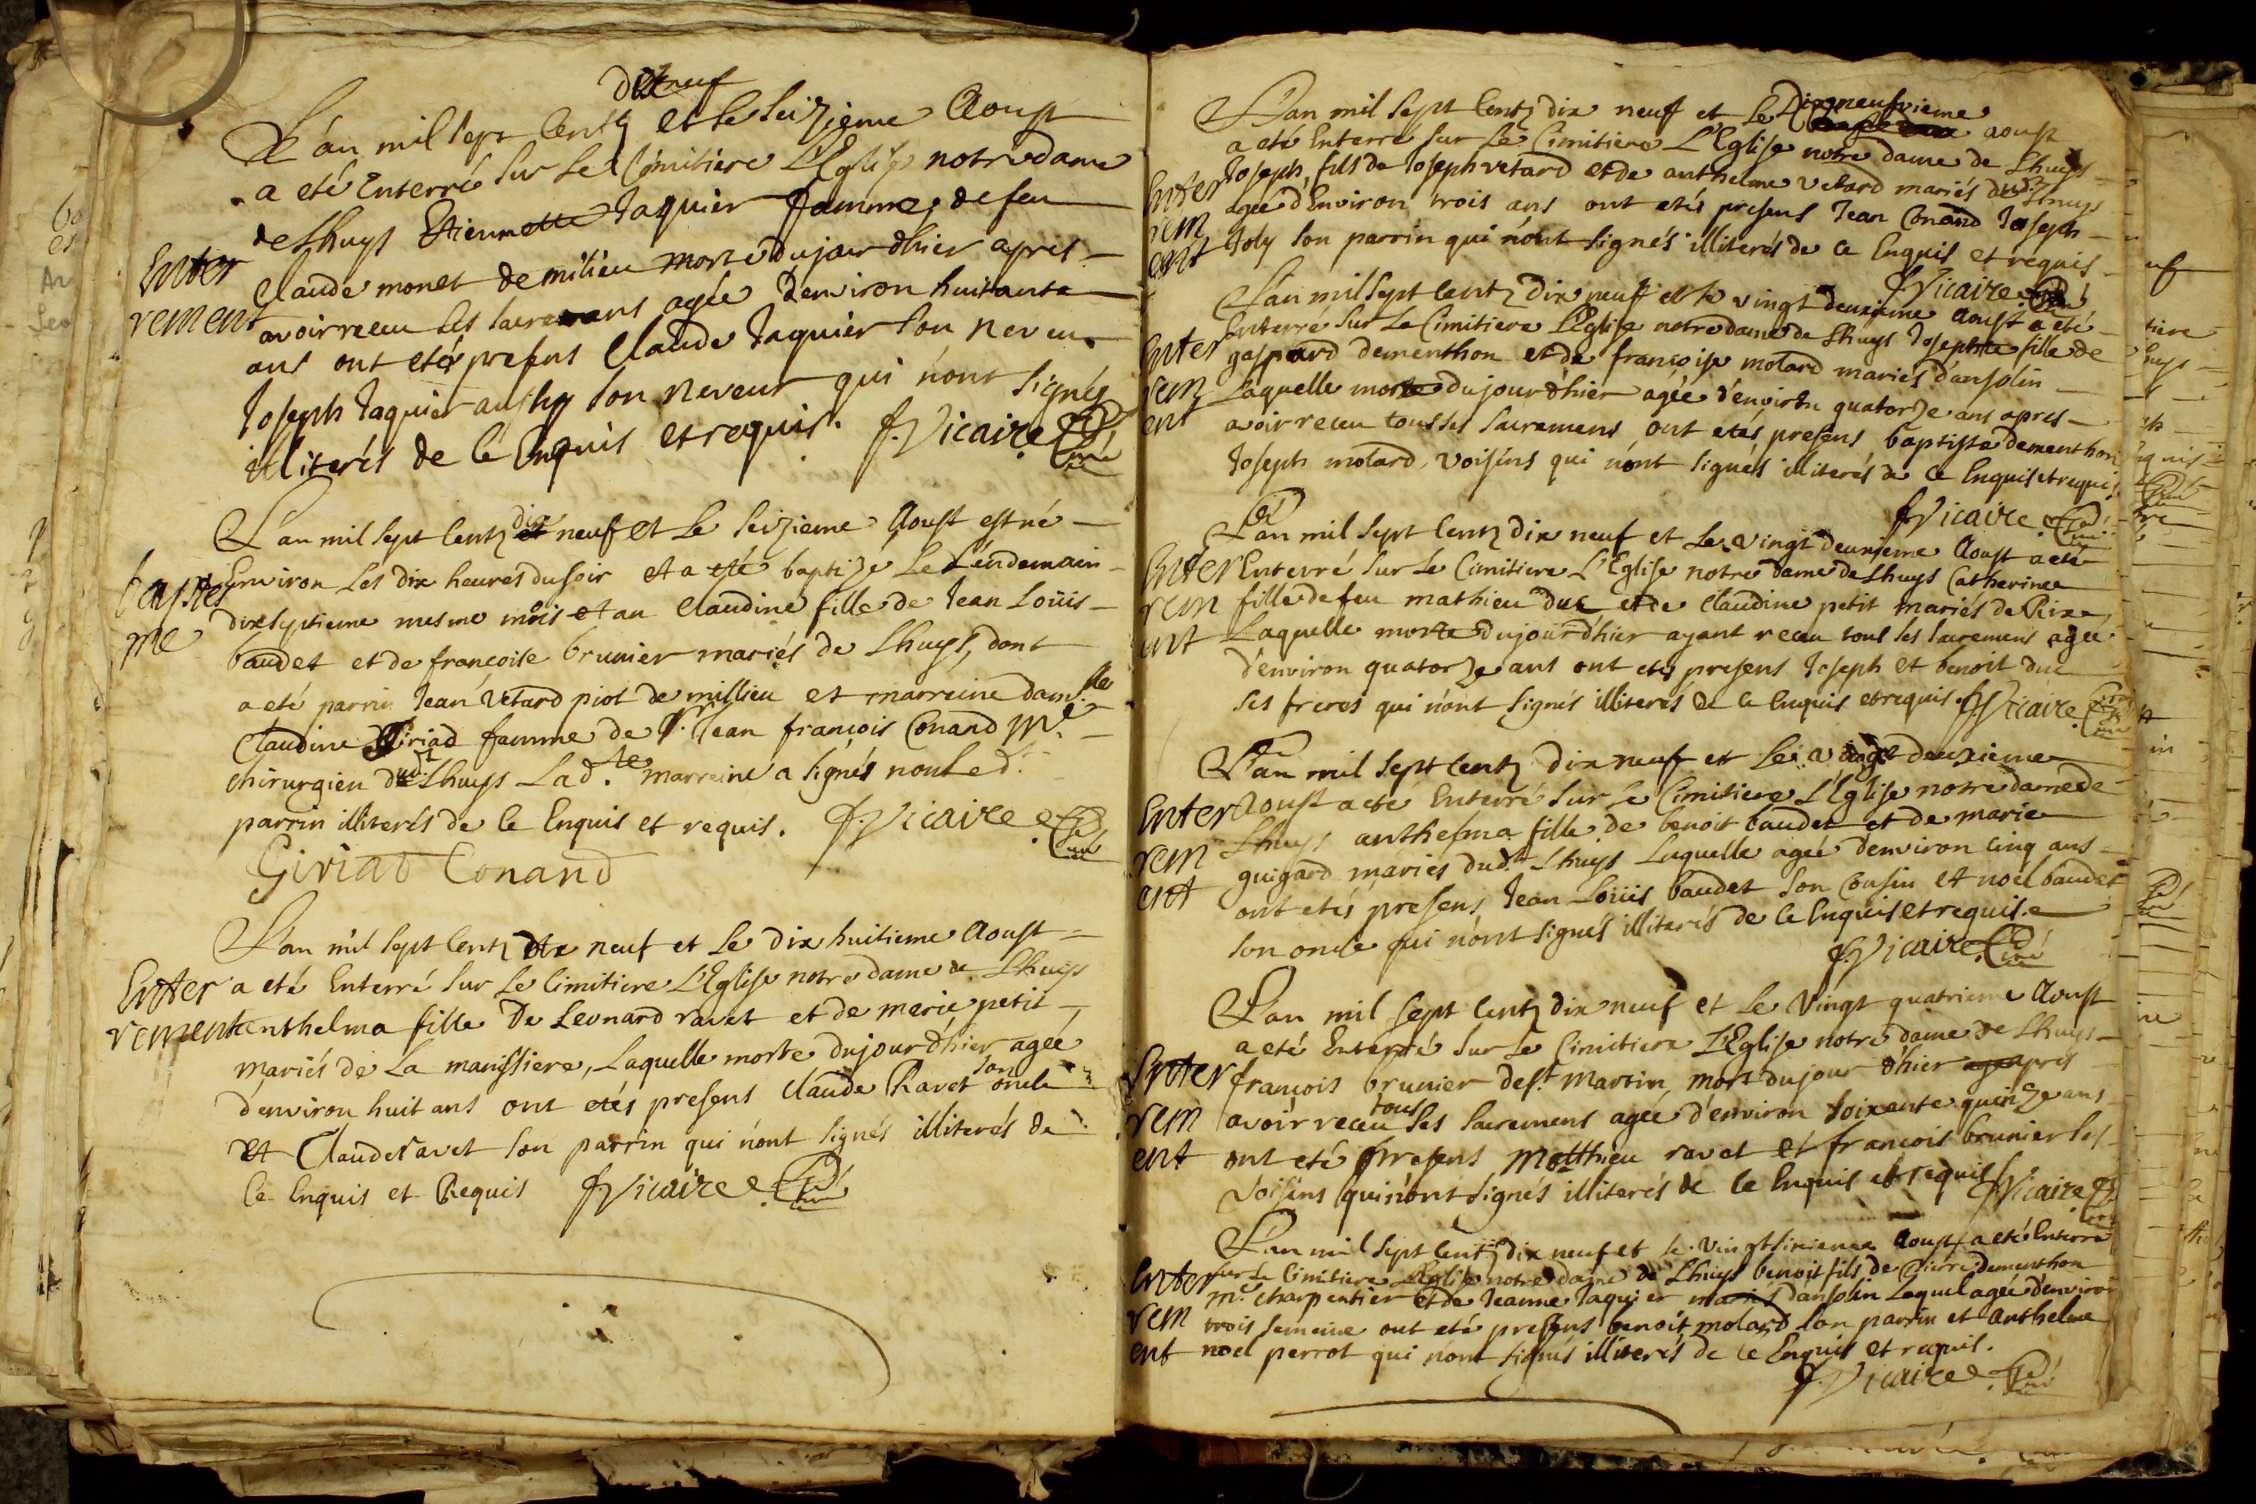 dixneuf
L'an mil sept centz et le seizieme Aoust
a eté Enterré sur le Cimitiere L'Eglise notre dame
de Lhuys Etiennette Jaquier famme de feu
Enter
Claude monet de milieu morte dujour dhier apres
rement
avoir receu les sacremens agée d'environ huitante
ans ont etés presens Claude Jaquier son neveu
Joseph Jaquier aussy son neveur qui n'ont signés
illiterés de ce Enquis et requis. f. Vicaire Curé
L'an mil sept centz dix neuf et le seizieme Aoust est né
Environ les dix heures du soir et a eté baptizé Le Léndemain
bapte
me
dixseptieme mesme mois et an Claudine fille de Jean Loüis
baudet et de francoise brunier mariés de Lhuys, dont
a eté parrin Jean Vetard piot de millieu et marreine damlle
Claudine Giriad famme de Sr. Jean françois Conand Me.
chirurgien dudt Lhuys Lad.te marreine a signés non led.t
parrin illiterés de ce Enquis et requis. f. Vicaire Curé
Giriad Conand
L'an mil sept centz dix neuf et le dix huitieme Aoust
Enter
a eté Enterré sur le Cimitiere L'Eglise notre dame de Lhuys
rement
anthelma fille De Leonard ravet et de marie petit
mariés de La manissiere, Laquelle morte dujourdhier agée
d'environ huit ans ont etés presens Claude Ravet son oncle
et Claude ravet son parrin qui n'ont signés illiterés de
ce Enquis et Requis f. Vicaire Curé
L'an mil sept centz dix neuf et le Dixneufvieme aoust
a eté Enterré sur le Cimitiere L'Eglise notre dame de Lhuys
Enter
rem
ent
Joseph, fils de Joseph vetard et de anthelme vetard mariés dudt Lhuys
agée d'Environ trois ans ont etés presens Jean Conand Joseph
Joly son parrin qui n'ont signés illiterés de ce Enquis et requis
f. Vicaire Curé
L'an mil sept centz Dix neuf et le vingt deuxieme Aoust a eté
Enterré sur le Cimitiere L'Eglise notre dame de Lhuys Josephte fille de
Enter
rem
ent
gaspard dementhon et de françoise molard mariés d'ansolin
Laquelle morte dujourdhier agée d'environ quatorze ans apres
avoir receu tous ses sacremens ont etés presens baptiste dementhon
Joseph molard voisins qui n'ont signés illiterés de ce Enquis et requis
f. Vicaire Curé
L'an mil sept centz dix neuf et le vingt deuxieme Aoust a eté
Enter
rem
ent
Enterré sur le Cimitiere L'Eglise notre dame de Lhuys Catherine
fille de feu mathieu duc et de Claudine petit mariés de Rix
Laquelle morte dujourdhier ayant receu tous les sacremens agée
d'environ quatorze ans ont etés presens Joseph et benoit duc
ses freres qui n'ont signés illiterés de ce Enquis et requis. f. Vicaire Curé
L'an mil sept centz dix neuf et le vingt deuxieme
Enter
rem
ent
Aoust a eté Enterré sur le Cimitiere L'Eglise notre dame de
Lhuys anthelma fille de benoit baudet et de marie
guigard mariés dud.t Lhuys Laquelle agée d'environ cinq ans
ont etés presens Jean Loüis baudet son cousin et noël baudet
son oncle qui n'ont signés illiterés de ce Enquis et requis.
f. Vicaire Curé
L'an mil sept centz dix neuf et le vingt quatrieme Aoust
a eté Enterré sur le Cimitiere L'Eglise notre dame de Lhuys
Enter
rem
ent
françois brunier de st. martin, mort dujour dhier apres
avoir receu tous ses sacremens agée d'environ soixante quinze ans
ont eté presens Matthieu ravet et françois brunier ses
voisins qui n'ont signés illiterés de ce Enquis et requis f. Vicaire Curé
L'an mil sept centz dix neuf et le vingt sixieme Aoust a eté Enterré
Enter
rem
ent
sur le Cimitiere L'Eglise notre dame de Lhuys benoit fils de pierre dementhon
me. charpentier et de Jeanne Jaquier mariés d'ansolin Lequel agée d'environ
trois semaine ont eté presens benoit molard son parrin et Anthelme
noel perrot qui n'ont signés illiterés de ce Enquis et requis.
f. Vicaire Curé